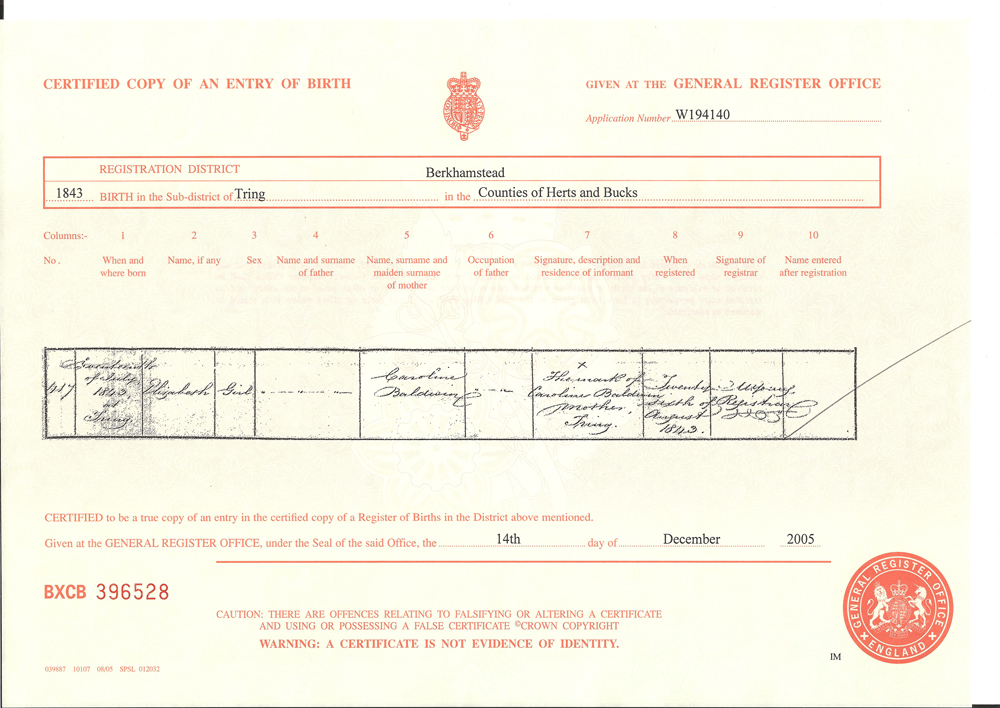 CERTIFIED COPY OF AN ENTRY OF BIRTH
GIVEN AT THE GENERAL REGISTER OFFICE
Application Number W194140
REGISTRATION DISTRICT Berkhamstead
1843 BIRTH in the Sub-district of Tring in the Counties of Herts and Bucks
Columns:- 1 2 3 4 5 6 7 8 9 10
No. When and where born Name, if any Sex Name and surname of father Name, surname and maiden surname of mother Occupation of father Signature, description and residence of informant When registered Signature of registrar Name entered after registration
417
of July
1843
at
Tring
Elizabeth
Girl
Caroline
Baldwin
X
The mark of
Caroline Baldwin
Mother.
Tring.
Twenty
sixth of
August
1843.
Registrar
CERTIFIED to be a true copy of an entry in the certified copy of a Register of Births in the District above mentioned.
Given at the GENERAL REGISTER OFFICE, under the Seal of the said Office, the 14th day of December 2005
BXCB 396528
CAUTION: THERE ARE OFFENCES RELATING TO FALSIFYING OR ALTERING A CERTIFICATE
AND USING OR POSSESSING A FALSE CERTIFICATE ©CROWN COPYRIGHT
WARNING: A CERTIFICATE IS NOT EVIDENCE OF IDENTITY.
GENERAL REGISTER OFFICE
ENGLAND
IM
039887 10107 08/05 SPSL 012032